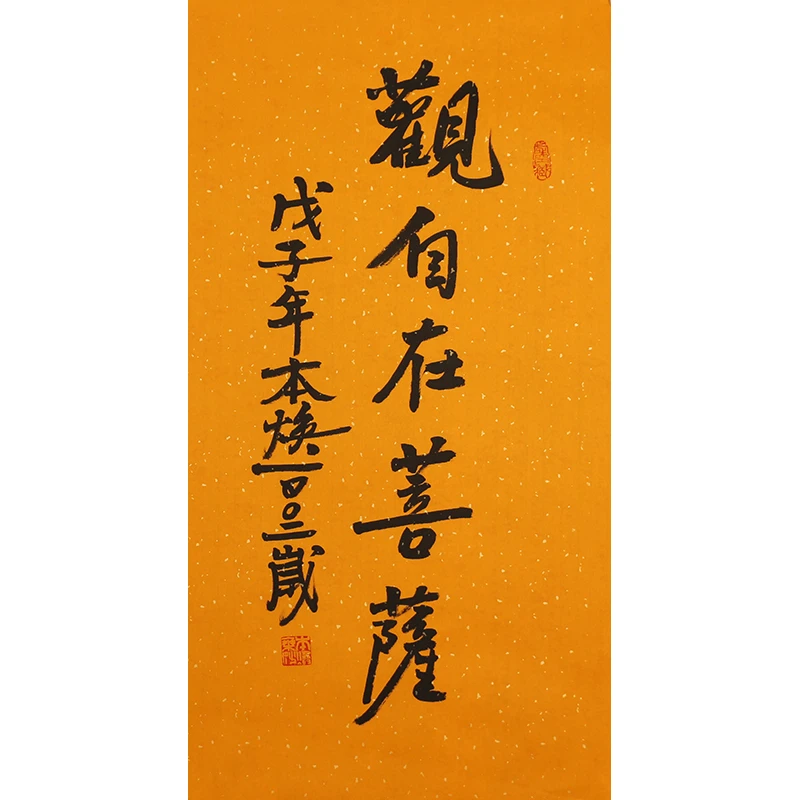 觀自在菩薩
戊子年本焕一百〇二歲